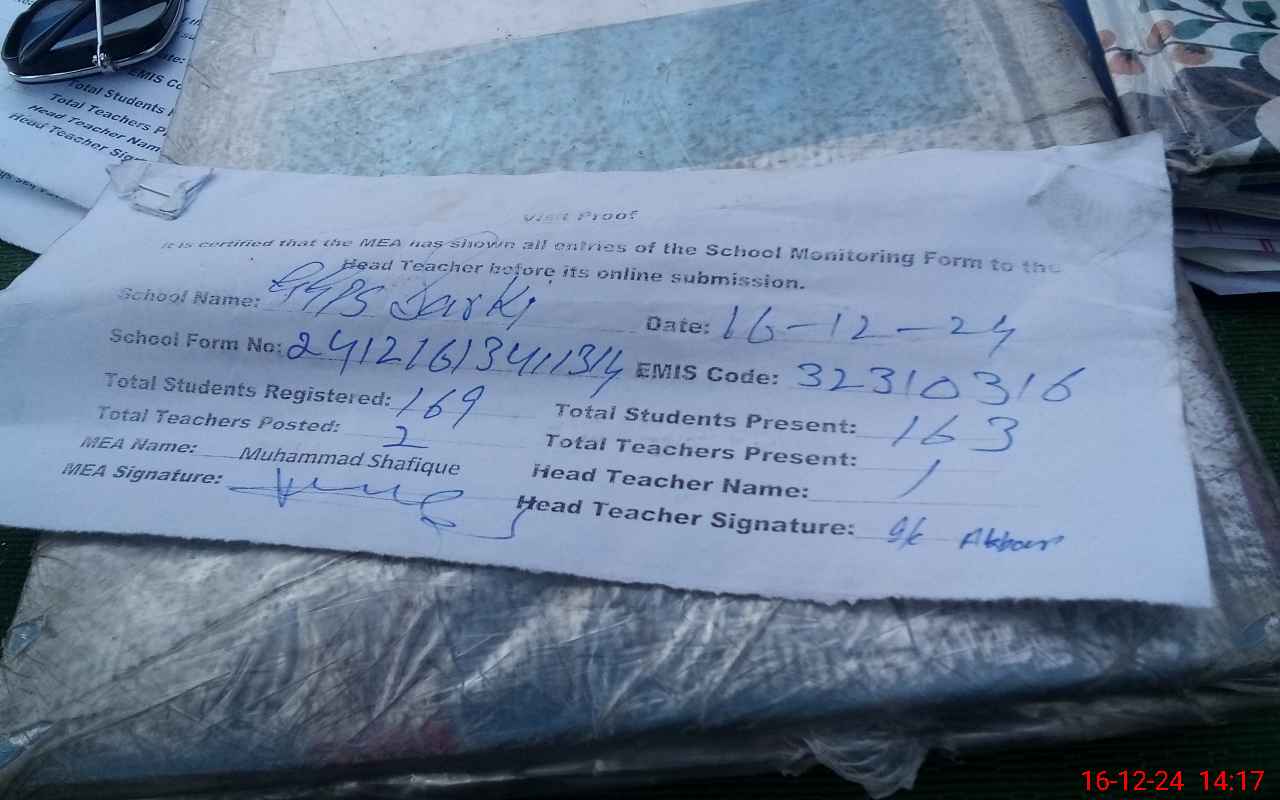 Visit Proof
It is certified that the MEA has shown all entries of the School Monitoring Form to the
Head Teacher before its online submission.
School Name: GGPS Darki Date: 16-12-24
School Form No: EMIS Code: 32310316
Total Students Registered: 169 Total Students Present: 163
Total Teachers Posted: 2 Total Teachers Present: 1
MEA Name: Muhammad Shafique Head Teacher Name:
MEA Signature: Head Teacher Signature: Akbar
EMIS Co
Total Students
Total Teachers P
Head Teacher Nam
Head Teacher Sig
16-12-24 14:17